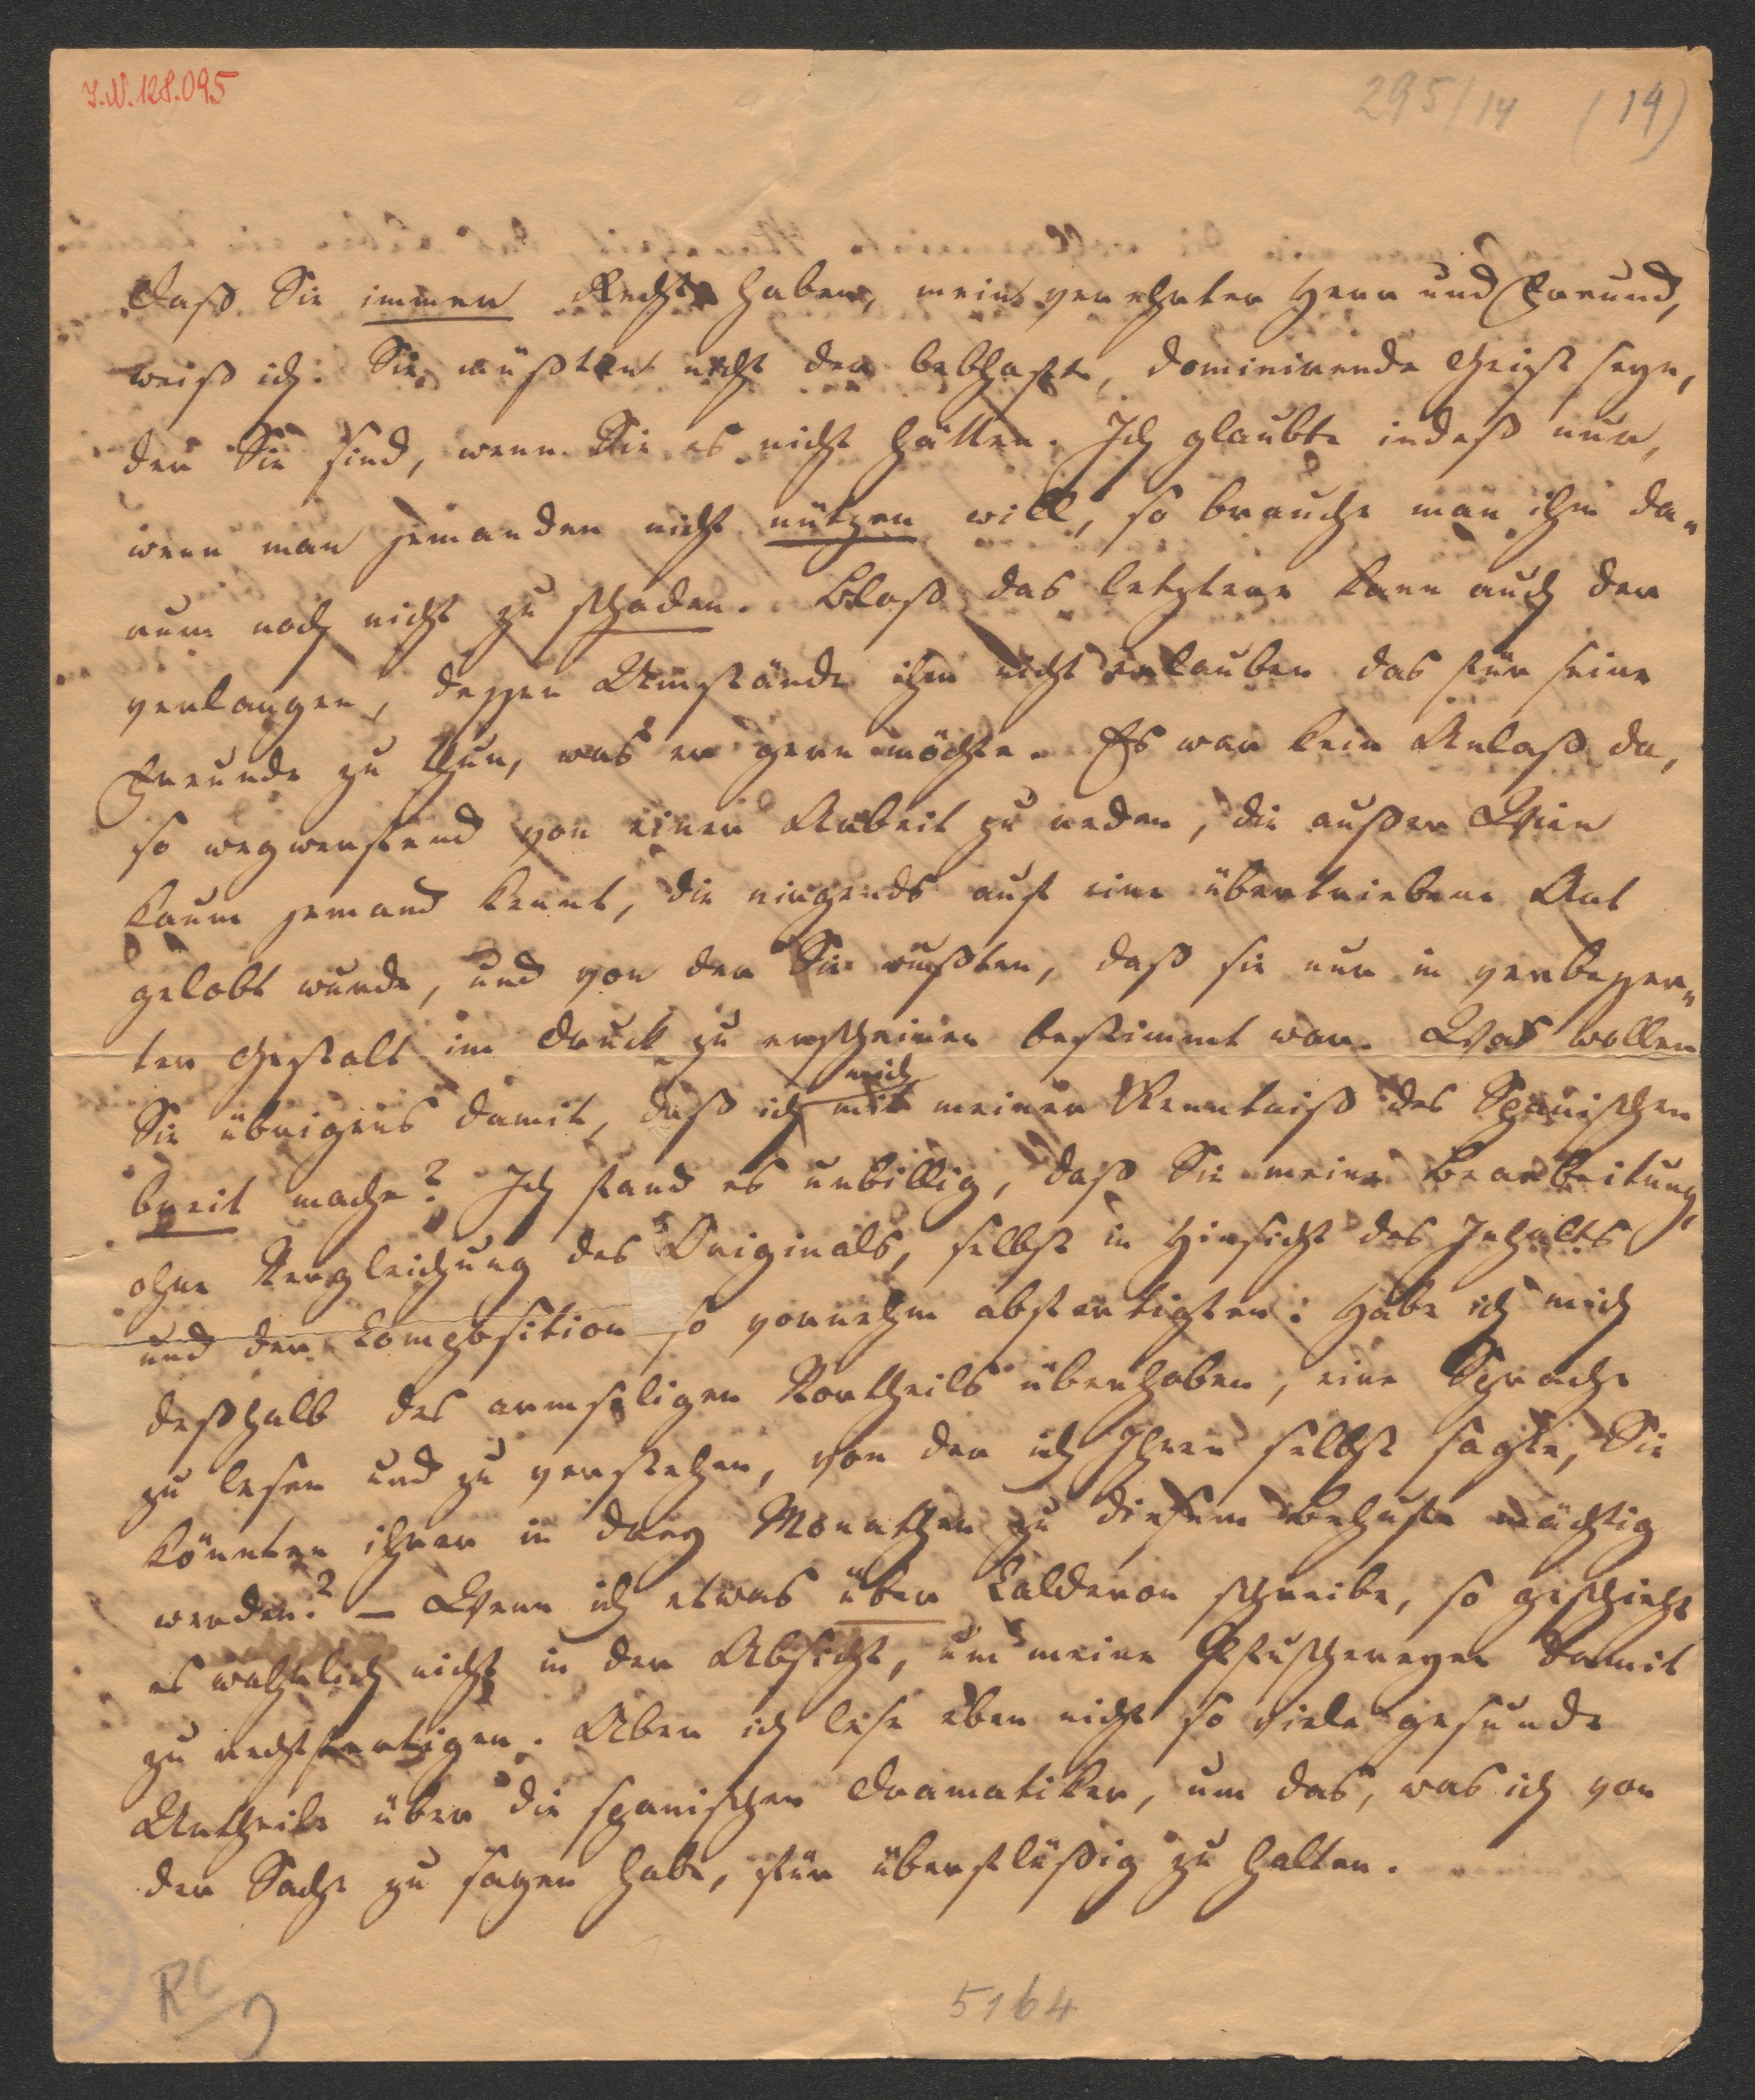 I.N. 128.095
295/14 (14)
Daß Sie immer Recht haben, mein verehrter Herr und Freund,
weiß ich. Sie müßten nicht der lebhafte, dominirende Geist seyn,
der Sie sind, wenn Sie es nicht hätten. Ich glaubte indeß nur,
wenn man jemanden nicht nützen will, so brauche man ihm da„
rum noch nicht zu schaden. Bloß das letztere kann auch der
verlangen, dessen Umstände ihm nicht erlauben das für seine
Freunde zu thun, was er gern möchte. Es war kein Anlaß da,
so wegwerfend von einer Arbeit zu reden, die außer Wien
kaum jemand kennt, die nirgends auf eine übertriebene Art
gelobt wurde, und von der Sie wußten, daß sie nur in verbesser„
ter Gestalt im Druck zu erscheinen bestimmt war. Was wollen
mich
Sie übrigens damit, daß ich mit meiner Kenntniß des Spanischen
breit mache? Ich fand es unbillig, daß Sie meine Bearbeitung,
ohne Vergleichung des Originals, selbst in Hinsicht des Inhalts
und der Composition so vornehm abfertigten: Habe ich mich
deßhalb des armseligen Vortheils überhoben, eine Sprache
zu lesen und zu verstehen, von der ich Ihnen selbst sagte, Sie
könnten ihrer in drey Monathen zu diesem Behufe mächtig
werden? – Wenn ich etwas über Calderon schreibe, so geschieht
es wahrlich nicht in der Absicht, um meine Pfuschereyen damit
zu rechtfertigen. Aber ich lese eben nicht so viele gesunde
Urtheile über die spanischen Dramatiker, um das, was ich von
der Sache zu sagen habe, für überflüßig zu halten.
RC
5164